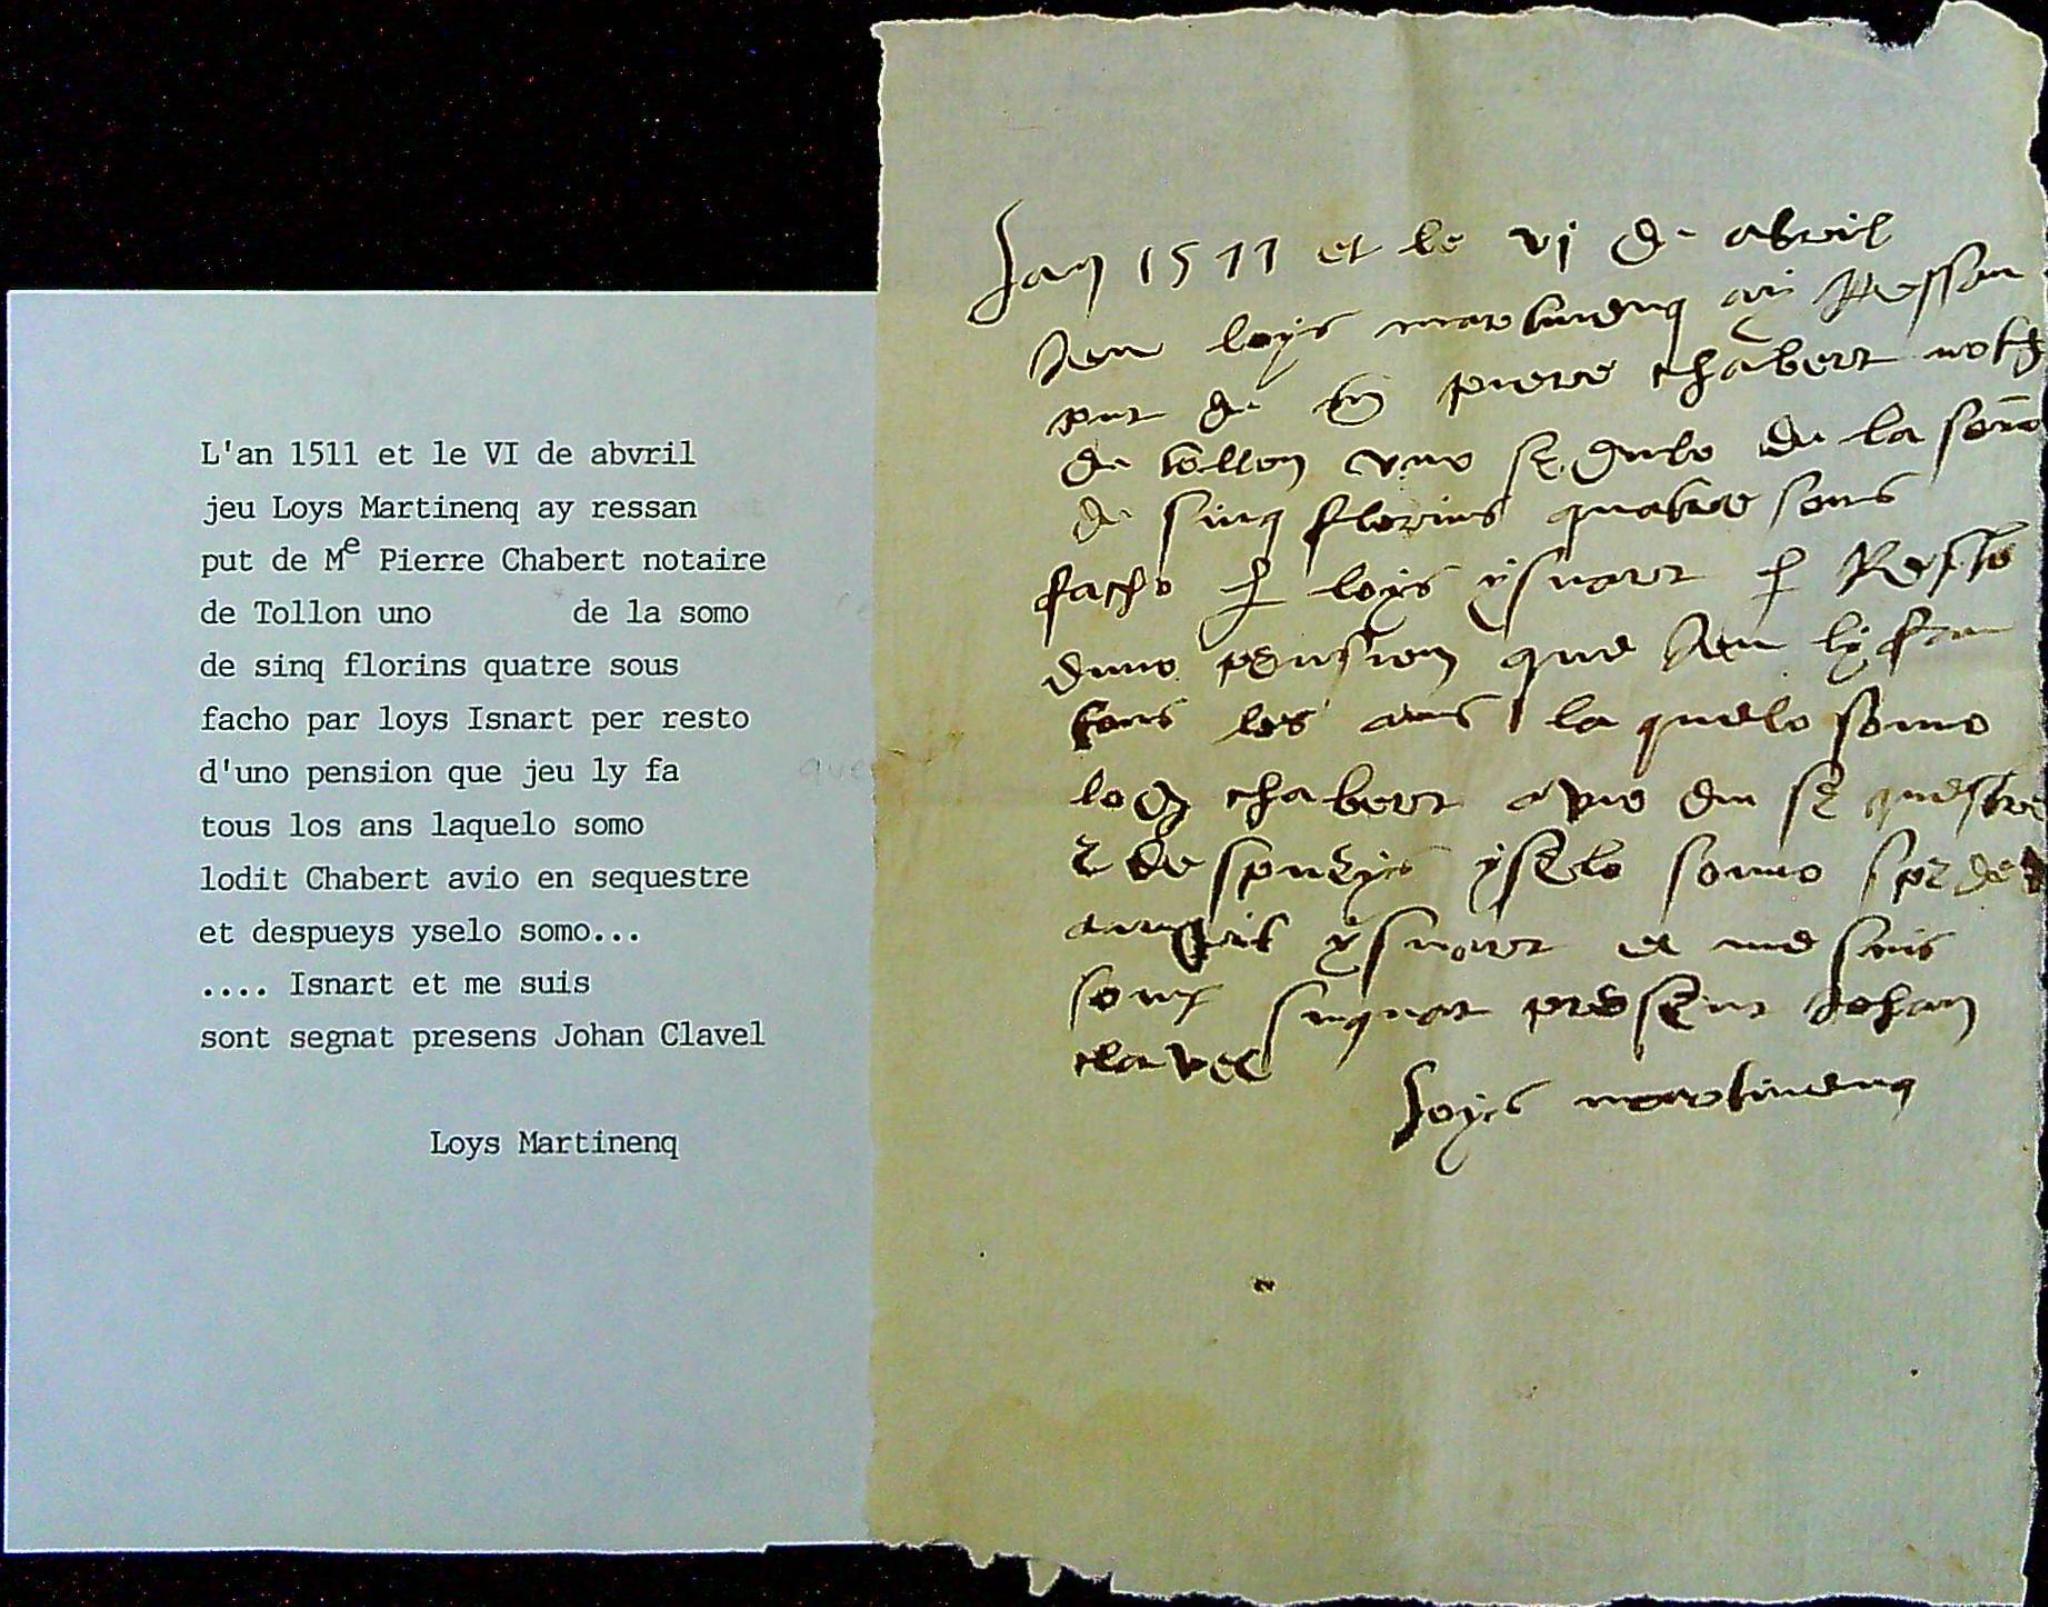 L'an 1511 et le VI de abvril
jeu Loys Martinenq ay ressan
put de Me Pierre Chabert notaire
de Tollon uno de la somo
de sinq florins quatre sous
facho par loys Isnart per resto
d'uno pension que jeu ly fa
tous los ans laquelo somo
lodit Chabert avio en sequestre
et despueys yselo somo...
.... Isnart et me suis
sont segnat presens Johan Clavel
Loys Martinenq
Lan 1511 et le vj de abvril
Jeu loys martinenq ay Ressau
put de me pierre chabert
de tollon uno sedulo de la somo
de sinq florins quatre sous
facho per loys ysnart per Resto
duno pension que Jeu ly fau
tous los ans la quelo somo
lodit chabert avio en sequestre
et despueys yselo somo
ysnart et me suis
sout signat present Johan
clavel
Loys martinenq